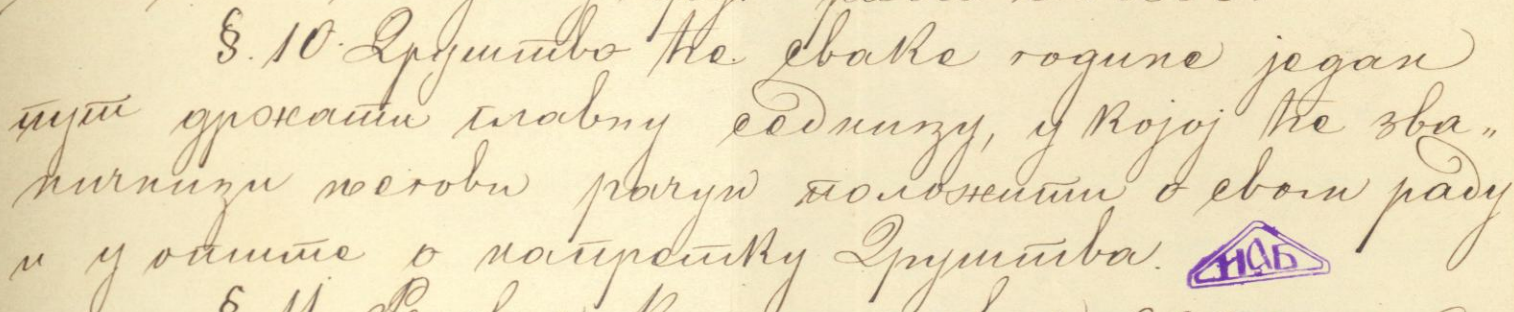 §. 10. Друштво ће сваке године један
пут држати главну седницу, у којој ће зва„
ничници његови рачун положити о свом раду
и у опште о напретку Друштва.
НАБ
§ 11.